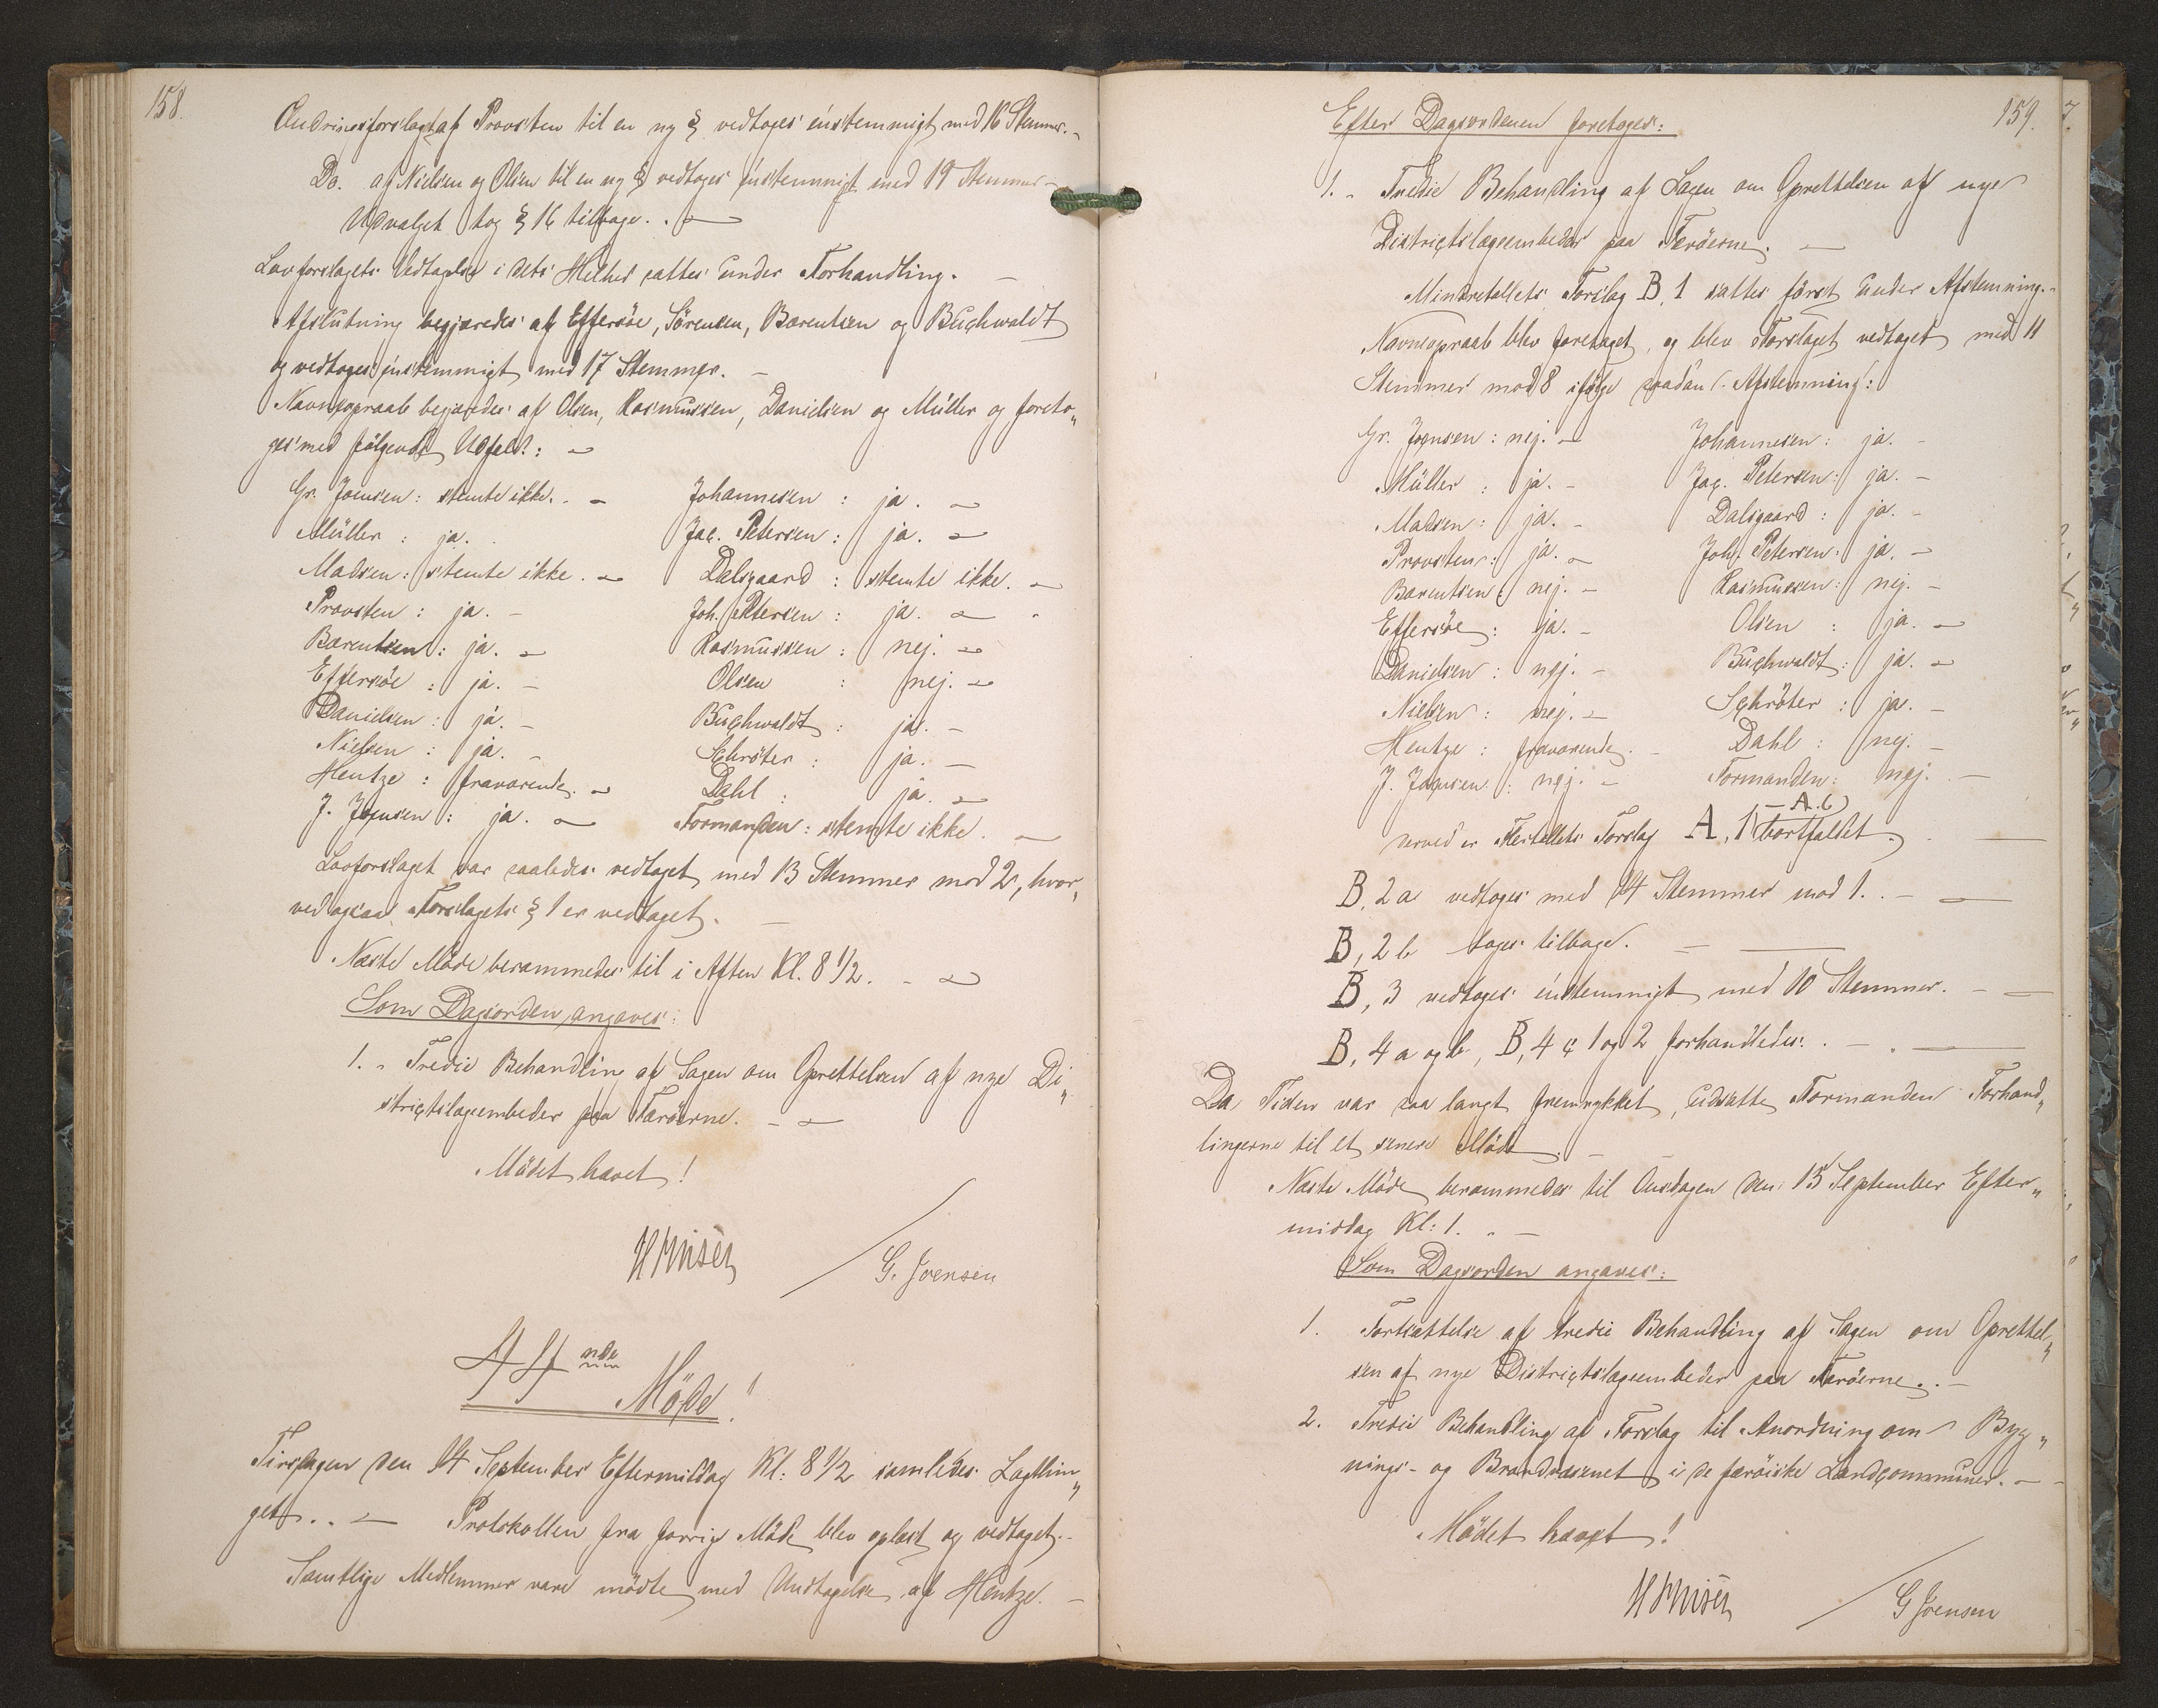 158.
Ændringsforslaget af Provsten til en ny § vedtoges énstemmigt med 16 Stemmer.
Do. af Nielsen og Olsen til en ny § vedtoges énstemmigt med 19 Stemmer.
Udvalget tog § 16 tilbage.
Lovforslagets Vedtagelse i dets Helhed sattes under Forhandling.
Afslutning begjæredes af Effersöe, Sörensen, Barentsen og Buchwaldt
og vedtoges énstemmigt med 17 Stemmer.
Navneopraab begjæredes af Olsen, Rasmussen, Danielsen og Müller og foreto„
ges med følgende Udfald:
Gr. Joensen: stemte ikke. Johannesen: ja.
Müller: ja. Jac. Petersen: ja.
Madsen: stemte ikke. Dalsgaard: stemte ikke.
Provsten: ja. Joh. Petersen: ja.
Barentsen: ja. Rasmussen: nej.
Effersöe: ja. Olsen: nej.
Danielsen: ja. Buchwaldt: ja.
Nielsen: ja. Schröter: ja.
Hentze: fraværende. Dahl: ja.
J. Joensen: ja. Formanden: stemte ikke.
Lovforslaget var saaledes vedtaget med 13 Stemmer mod 2, hvor„
ved ogsaa Forslagets § 1 er vedtaget.
Næste Möde berammedes til i Aften Kl. 8 1/2.
Som Dagsorden angaves:
1. Tredie Behandling af Sagen om Oprettelsen af nye Di„
strictslægeembeder paa Færöerne.
Mödet hævet!
G. Joensen
44nde Möde!
Tirsdagen den 14 September Eftermiddag Kl: 8 1/2 samledes Lagthin„
get. Protokollen fra forrige Möde blev oplæst og vedtaget.
Samtlige Medlemmer vare mödte med Undtagelse af Hentze.
159.
Efter Dagsordenen foretoges:
1. Tredie Behandling af Sagen om Oprettelsen af nye
Districtslægeembeder paa Færöerne.
Mindretallets Forslag B, 1 sattes först under Afstemning.
Navneopraab blev foretaget, og blev Forslaget vedtaget med 11
Stemmer mod 8 ifölge saadan Afstemning:
Gr. Joensen: nej. Johannesen: ja.
Müller: ja. Jac. Petersen: ja.
Madsen: ja. Dalsgaard: ja.
Provsten: ja. Joh. Petersen: ja.
Barentsen: nej. Rasmussen: nej.
Effersöe: ja. Olsen: ja.
Danielsen: nej. Buchwaldt: ja.
Nielsen: nej. Schröter: ja.
Hentze: fraværende. Dahl: nej.
J. Joensen: nej. Formanden: nej.
Derved er Flertallets Forslag A, 1 – A. 6 bortfaldet.
B, 2 a vedtoges med 14 Stemmer mod 1.
B, 2 b toges tilbage.
B, 3 vedtoges énstemmigt med 10 Stemmer.
B, 4 a og b, B, 4 c 1 og 2 forhandledes.
Da Tiden var saa langt fremrykket, udsatte Formanden Forhand„
lingerne til et senere Möde.
Næste Möde berammedes til Onsdagen den 15 September Efter„
middag Kl: 1.
Som Dagsorden angaves:
1. Fortsættelse af tredie Behandling af Sagen om Oprettel„
sen af nye Districtslægeembeder paa Færöerne.
2. Tredie Behandling af Forslag til Anordning om Byg„
nings- og Brandvæsenet i de færöiske Landcommuner.
Mödet hævet!
G Joensen